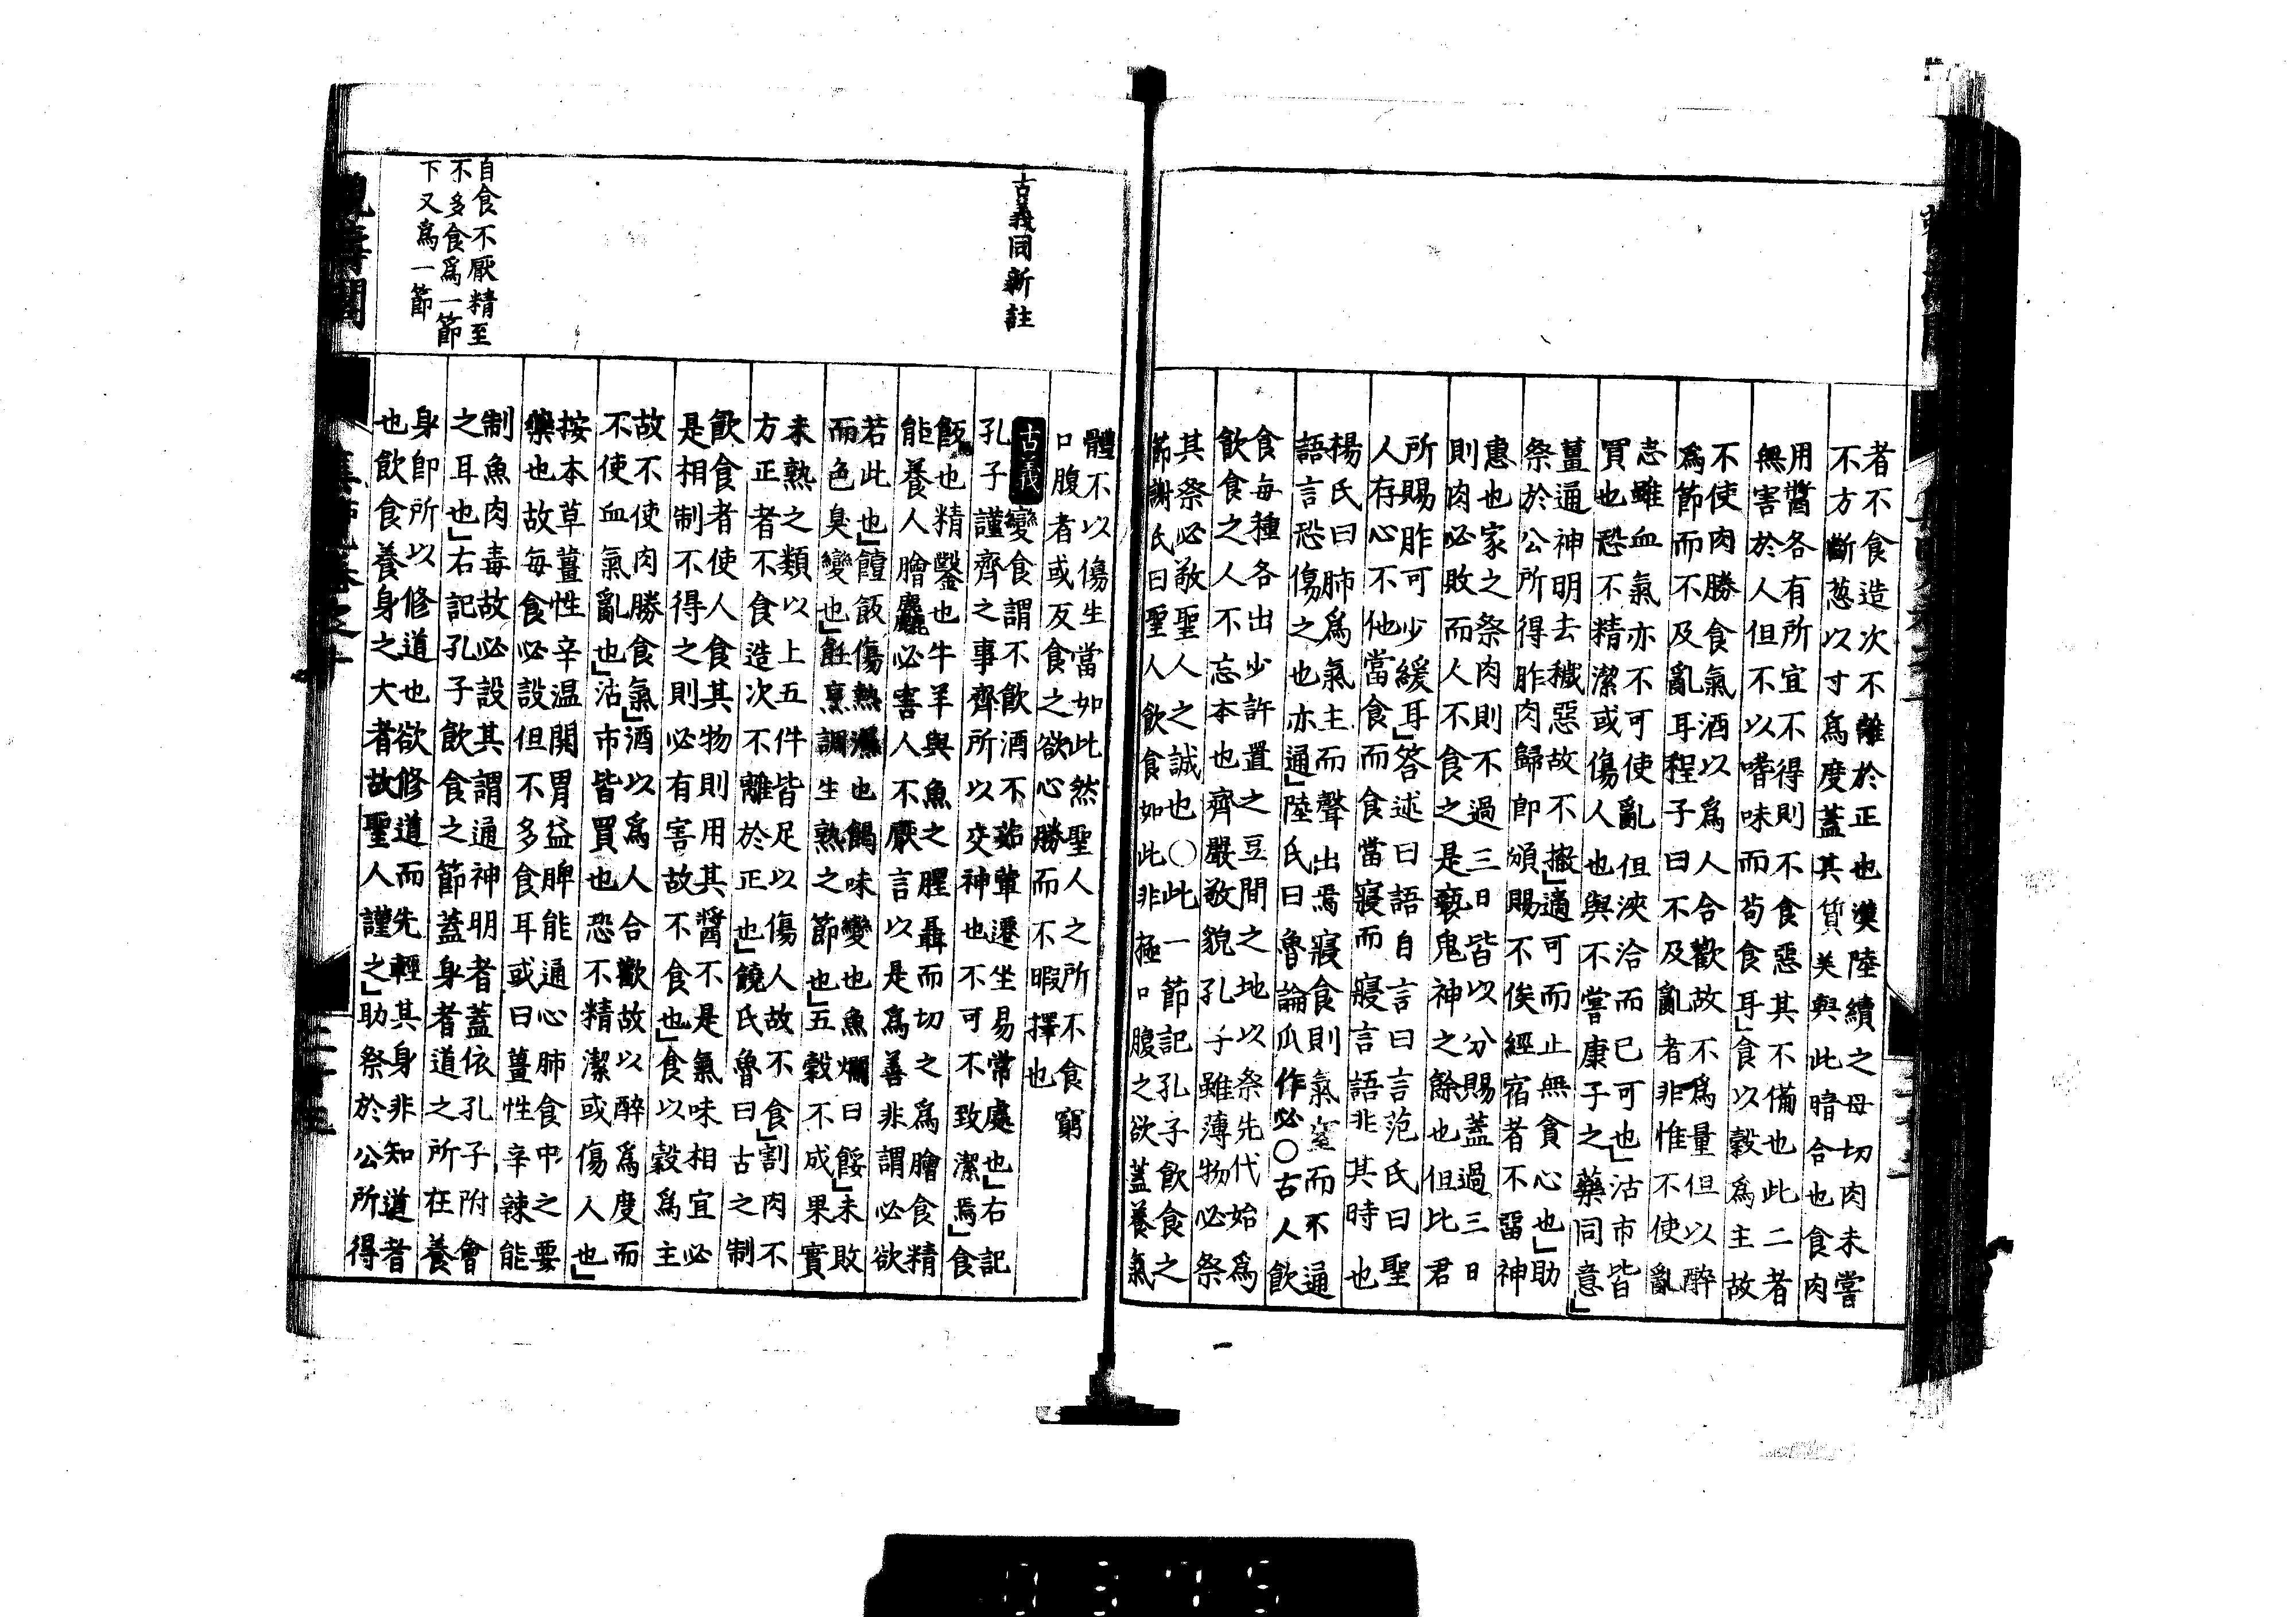 者不食造次不離於正也漢陸續之母切肉未嘗
不方斷葱以寸爲度蓋其質美與此暗合也食肉
用醬各有所宜不得則不食惡其不備也此二者
無害於人但不以嗜味而苟食耳」食以穀爲主故
不使肉勝食氣酒以爲人合歡故不爲量但以醉
爲節而不及亂耳程子曰不及亂者非惟不使亂
志雖血氣亦不可使亂但浹洽而已可也」沽市皆
買也恐不精潔或傷人也與不嘗康子之藥同意」
薑通神明去穢惡故不撤」適可而止無貪心也」助
祭於公所得胙肉歸即頒賜不俟經宿者不留神
惠也家之祭肉則不過三日皆以分賜蓋過三日
則肉必敗而人不食之是褻鬼神之餘也但比君
所賜胙可少緩耳」答述曰語自言曰言范氏曰聖
人存心不他當食而食當寢而寢言語非其時也
楊氏曰肺爲氣主而聲出焉寢食則氣窒而不通
語言恐傷之也亦通」陸氏曰魯論瓜作必○古人飲
食每種各出少許置之豆間之地以祭先代始爲
飲食之人不忘本也齊嚴敬貌孔子雖薄物必祭
其祭必敬聖人之誠也○此一節記孔子飲食之
節謝氏曰聖人飲食如此非極口腹之欲蓋養氣
體不以傷生當如此然聖人之所不食窮
口腹者或反食之欲心勝而不暇擇也
古義同新註
古義 變食謂不飲酒不茹葷遷坐易常處也」右記
孔子謹齊之事齊所以交神也不可不致潔焉」食
飯也精鑿也牛羊與魚之腥聶而切之爲膾食精
能養人膾麤必害人不厭言以是爲善非謂必欲
若此也」饐飯傷熱濕也餲味變也魚爛曰餒」未敗
而色臭變也」飪烹調生熟之節也」五穀不成果實
未熟之類以上五件皆足以傷人故不食」割肉不
方正者不食造次不離於正也」饒氏魯曰古之制
飲食者使人食其物則用其醬不是氣味相宜必
是相制不得之則必有害故不食也」食以穀爲主
故不使肉勝食氣」酒以爲人合歡故以醉爲度而
不使血氣亂也」沽市皆買也恐不精潔或傷人也」
按本草薑性辛温開胃益脾能通心肺食中之要
藥也故每食必設但不多食耳或曰薑性辛辣能
制魚肉毒故必設其謂通神明者蓋依孔子附會
之耳也」右記孔子飲食之節蓋身者道之所在養
身即所以修道也欲修道而先輕其身非知道者
也飲食養身之大者故聖人謹之」助祭於公所得
自食不厭精至
不多食爲一節
下又爲一節